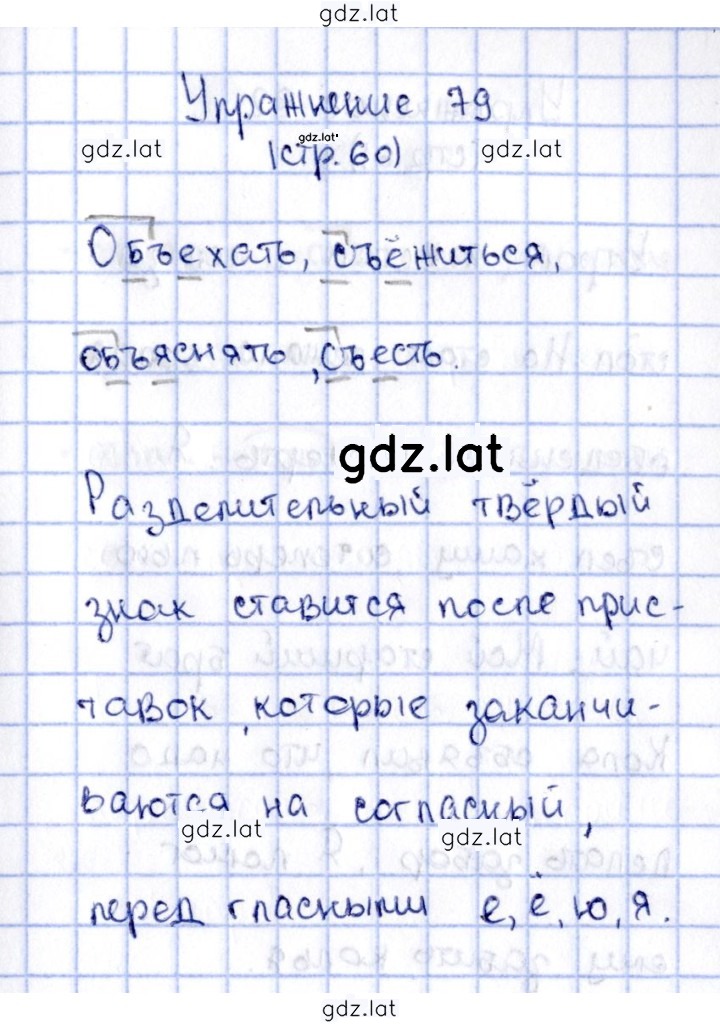 gdz.lat
Упражнение 79
gdz.lat gdz.lat gdz.lat
(стр. 60)
Объехать, съёжиться,
объяснять, съесть.
gdz.lat
Разделительный твёрдый
знак ставится после прис-
тавок, которые заканчи-
ваются на согласный,
gdz.lat gdz.lat
перед гласными е, ё, ю, я.
gdz.lat